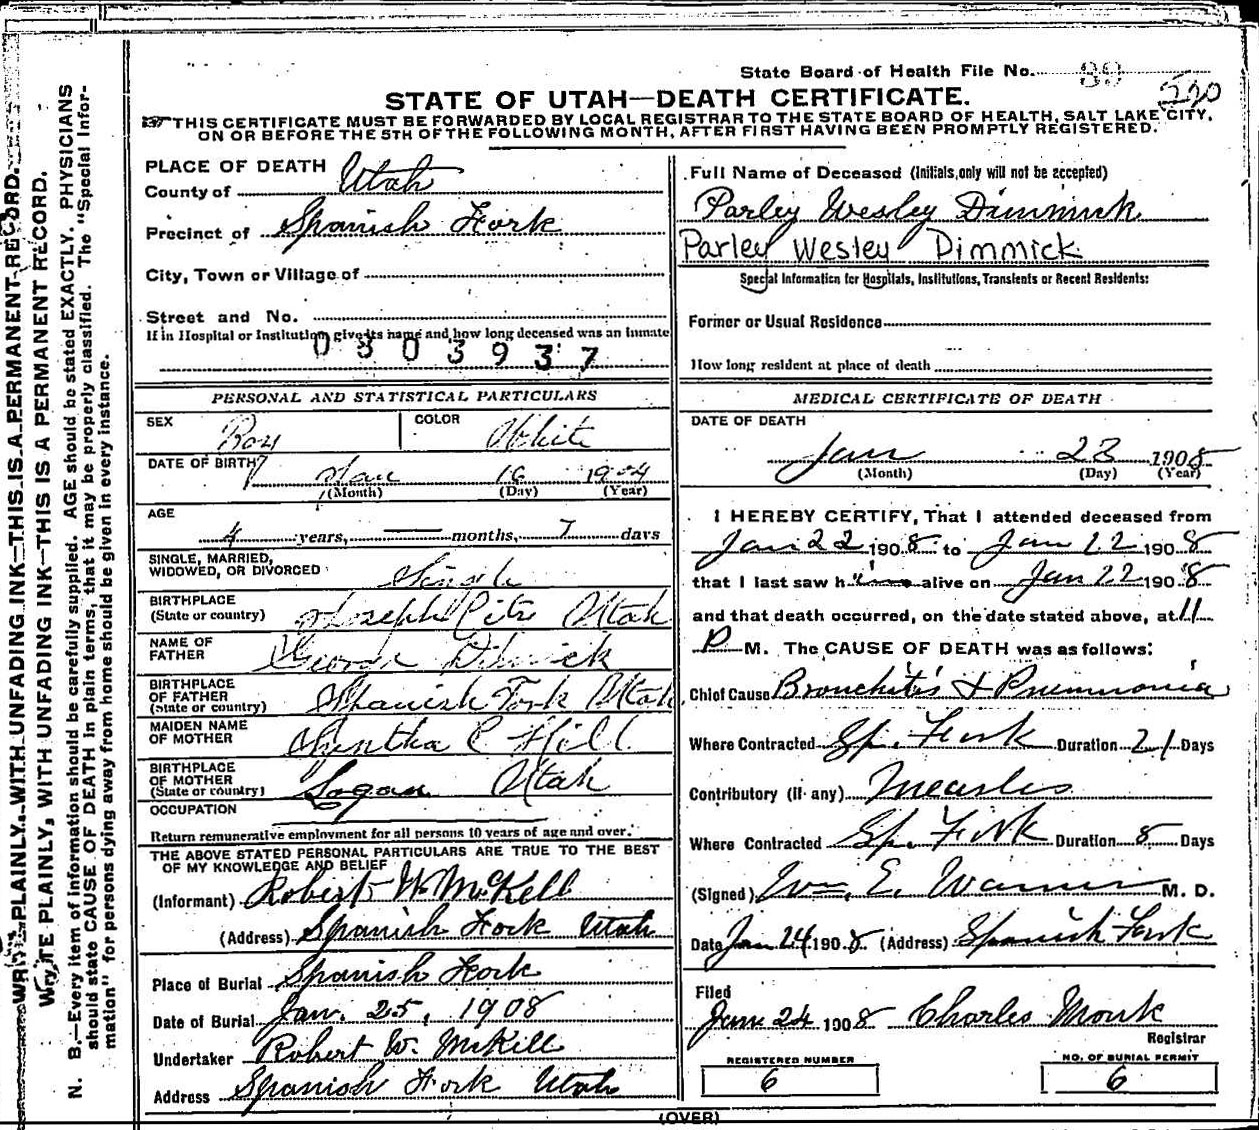 State Board of Health File No. 39
220
STATE OF UTAH—DEATH CERTIFICATE.
THIS CERTIFICATE MUST BE FORWARDED BY LOCAL REGISTRAR TO THE STATE BOARD OF HEALTH, SALT LAKE CITY,
ON OR BEFORE THE 5TH OF THE FOLLOWING MONTH, AFTER FIRST HAVING BEEN PROMPTLY REGISTERED.
WRITE PLAINLY, WITH UNFADING INK—THIS IS A PERMANENT RECORD.
WRITE PLAINLY, WITH UNFADING INK—THIS IS A PERMANENT RECORD.
N. B.—Every item of information should be carefully supplied. AGE should be stated EXACTLY. PHYSICIANS
should state CAUSE OF DEATH in plain terms, that it may be properly classified. The "Special Infor-
mation" for persons dying away from home should be given in every instance.
PLACE OF DEATH
County of Utah
Precinct of Spanish Fork
City, Town or Village of
Street and No.
If in Hospital or Institution give its name and how long deceased was an inmate
0303937
PERSONAL AND STATISTICAL PARTICULARS
SEX Boy COLOR White
DATE OF BIRTH Jan 16 1904
(Month) (Day) (Year)
AGE
4 years, — months, 7 days
SINGLE, MARRIED,
WIDOWED, OR DIVORCED Single
BIRTHPLACE
(State or country) Joseph City Utah
NAME OF
FATHER George Dimick
BIRTHPLACE
OF FATHER
(State or country) Spanish Fork Utah
MAIDEN NAME
OF MOTHER Cyntha E Hill
BIRTHPLACE
OF MOTHER
(State or country) Logan Utah
OCCUPATION
Return remunerative employment for all persons 10 years of age and over.
THE ABOVE STATED PERSONAL PARTICULARS ARE TRUE TO THE BEST
OF MY KNOWLEDGE AND BELIEF
(Informant) Robert W. McKell
(Address) Spanish Fork Utah
Place of Burial Spanish Fork
Date of Burial Jan. 25, 1908
Undertaker Robert W. McKell
Address Spanish Fork Utah
Full Name of Deceased (Initials only will not be accepted)
Parley Wesley Dimmick
Parley Wesley Dimmick
Special Information for Hospitals, Institutions, Transients or Recent Residents:
Former or Usual Residence
How long resident at place of death
MEDICAL CERTIFICATE OF DEATH
DATE OF DEATH
Jan 23 1908
(Month) (Day) (Year)
I HEREBY CERTIFY, That I attended deceased from
Jan 22 1908 to Jan 22 1908
that I last saw him alive on Jan 22 1908
and that death occurred, on the date stated above, at 11
P M. The CAUSE OF DEATH was as follows:
Chief Cause Bronchitis & Pneumonia
Where Contracted Sp. Fork Duration 21 Days
Contributory (if any) Measles
Where Contracted Sp. Fork Duration 8 Days
(Signed) Wm. E. Warner M. D.
Date Jan 24 1908 (Address) Spanish Fork
Filed
Jan 24 1908 Charles Monk
Registrar
REGISTERED NUMBER
6
NO. OF BURIAL PERMIT
6
(OVER)